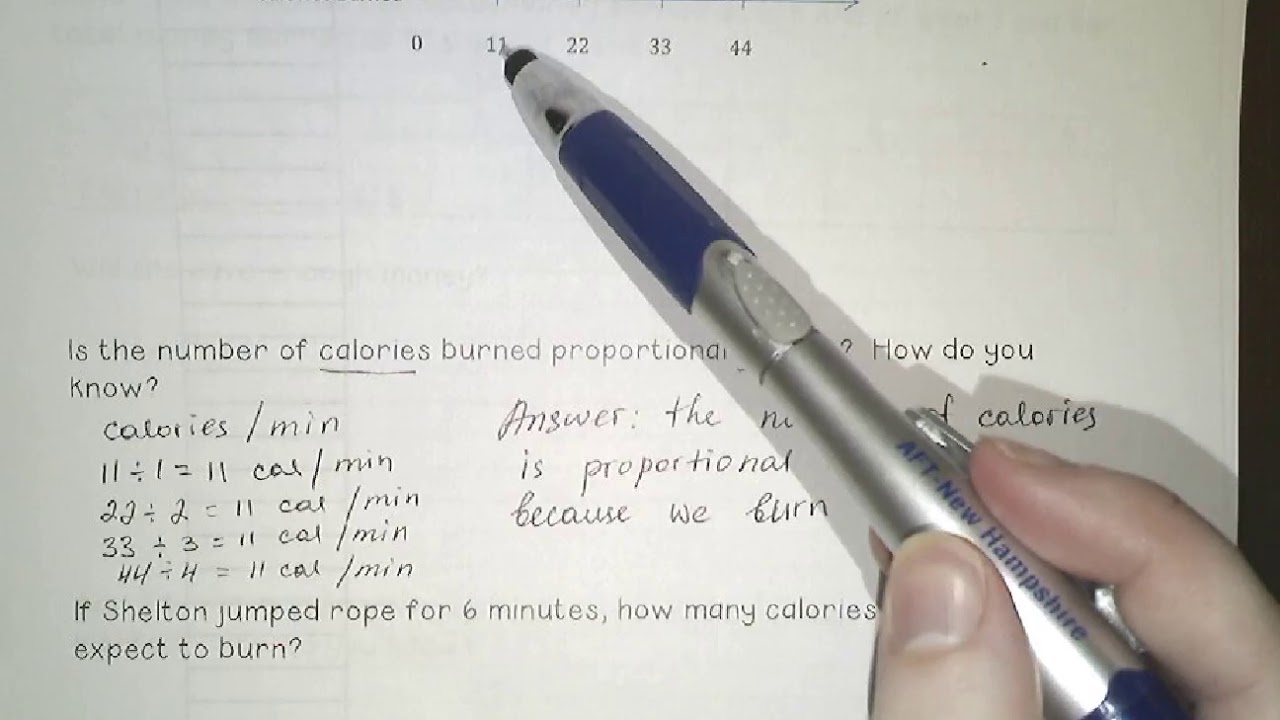 0 11 22 33 44
Is the number of calories burned proportional ? How do you
know?
calories / min
11 ÷ 1 = 11 cal / min
22 ÷ 2 = 11 cal / min
33 ÷ 3 = 11 cal / min
44 ÷ 4 = 11 cal / min
Answer: the of calories
is proportional
because we burn
If Shelton jumped rope for 6 minutes, how many calories
expect to burn?
AFT-New Hampshire